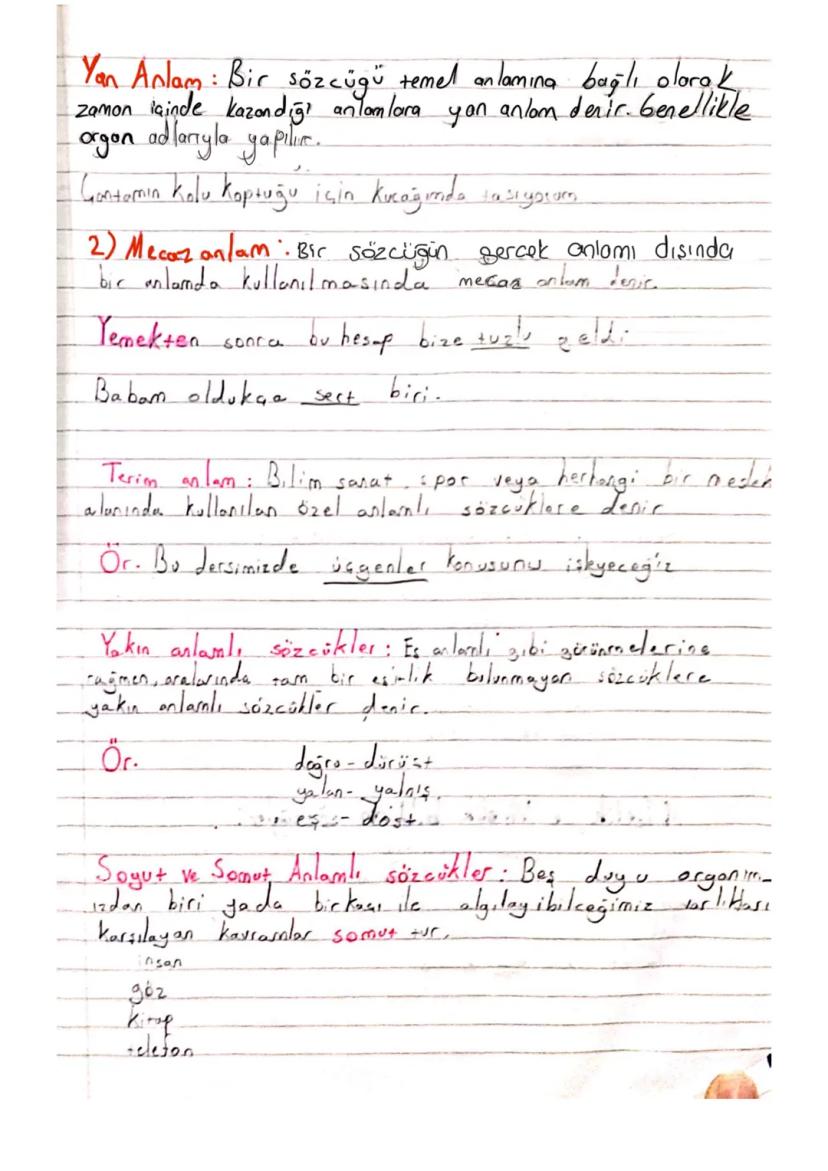 Yan Anlam: Bir sözcüğü temel anlamına bağlı olarak
zaman içinde kazandığı anlamlara yan anlam denir. Genellikle
organ adlarıyla yapılır.
Çantamın kolu koptuğu için kucağımda taşıyorum
2) Mecaz anlam: Bir sözcüğün gerçek anlamı dışında
bir anlamda kullanılmasında mecaz anlam denir.
Yemekten sonra bu hesap bize tuzlu geldi
Babam oldukça sert biri.
Terim anlam: Bilim sanat, spor veya herhangi bir meslek
alanında kullanılan özel anlamlı sözcüklere denir
Ör. Bu dersimizde üçgenler konusunu işleyeceğiz
Yakın anlamlı sözcükler: Eş anlamlı gibi görünmelerine
rağmen, aralarında tam bir eşitlik bulunmayan sözcüklere
yakın anlamlı sözcükler denir.
Ör.
doğru - dürüst
yalan - yalnış
eş - dost
Soyut ve Somut Anlamlı sözcükler: Beş duyu organım-
ızdan biri yada birkaçı ile algılayibilceğimiz varlıkları
karşılayan kavramlar somut tur.
insan
göz
kitap
telefon